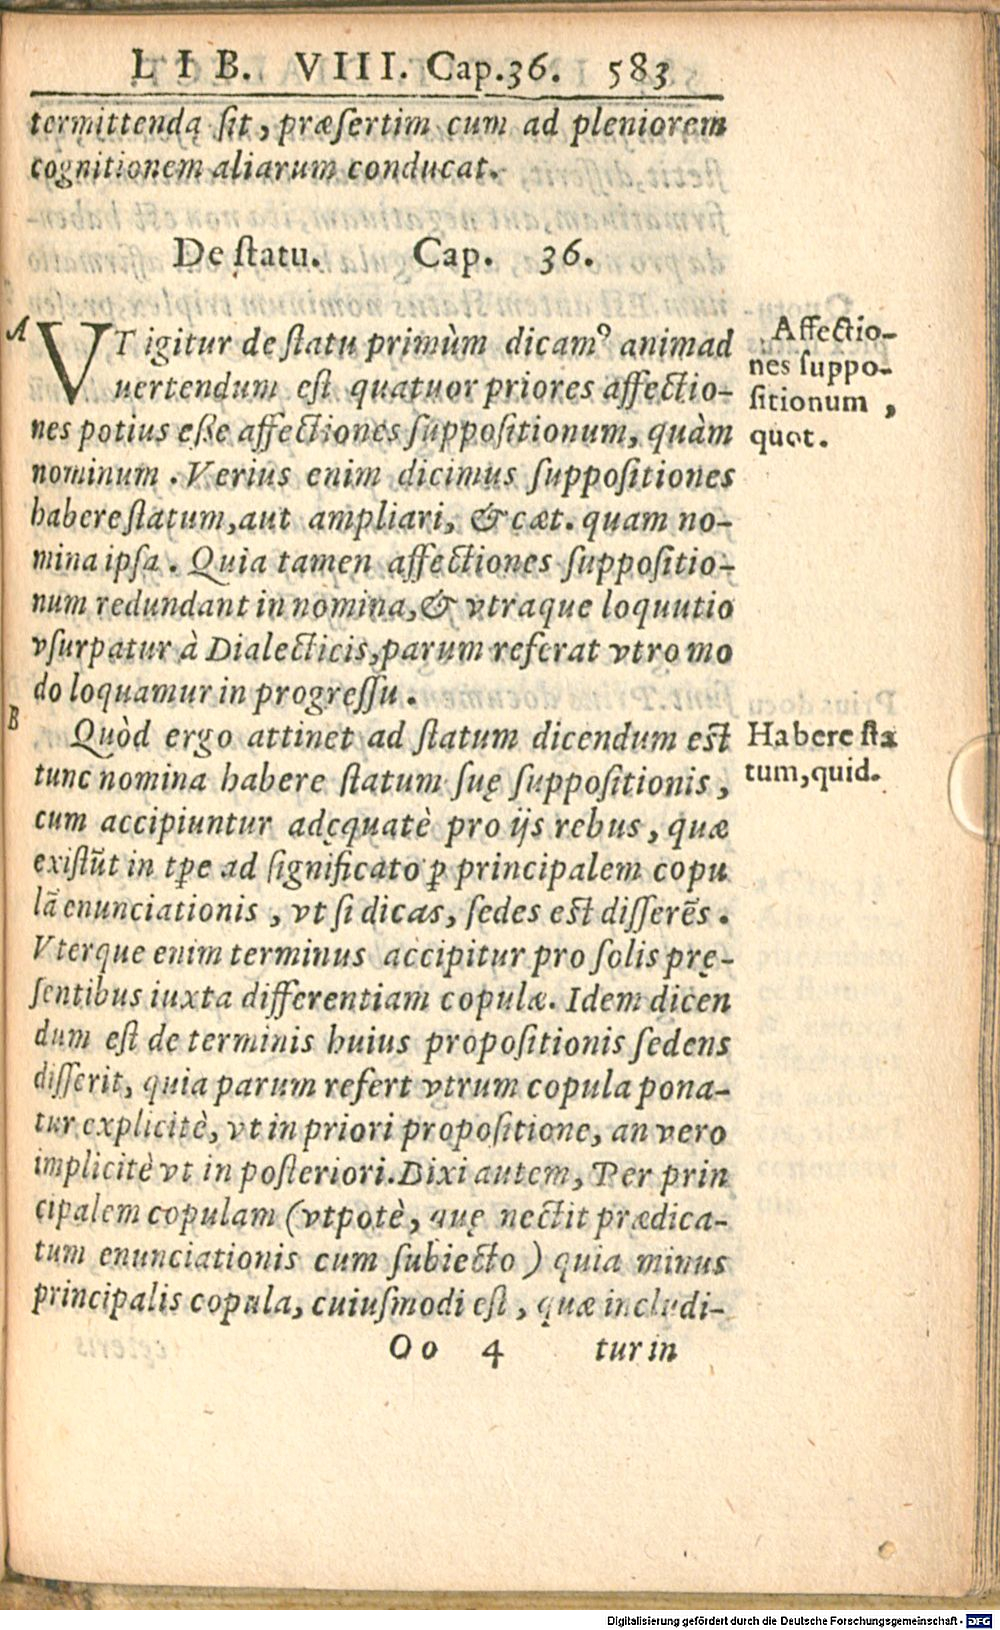 LIB. VIII. Cap.36. 583
termittendą sit, præsertim cum ad pleniorem
cognitionem aliarum conducat.
De statu. Cap. 36.
A
VT igitur de statu primùm dicamꝰ animad
uertendum est quatuor priores affectio-
nes potius esse affectiones suppositionum, quàm
nominum. Verius enim dicimus suppositiones
habere statum, aut ampliari, & cæt. quam no-
mina ipsa. Quia tamen affectiones suppositio-
num redundant in nomina, & vtraque loquutio
vsurpatur à Dialecticis, parum referat vtro mo
do loquamur in progressu.
Affectio-
nes suppo-
sitionum,
quot.
B
Quòd ergo attinet ad statum dicendum est
tunc nomina habere statum suę suppositionis,
cum accipiuntur adęquatè pro ijs rebus, quæ
existũt in tp̃e ad significato ꝑ principalem copu
lã enunciationis, vt si dicas, sedes est disserẽs.
Vterque enim terminus accipitur pro solis prę-
sentibus iuxta differentiam copulæ. Idem dicen
dum est de terminis huius propositionis sedens
disserit, quia parum refert vtrum copula pona-
tur explicitè, vt in priori propositione, an vero
implicitè vt in posteriori. Dixi autem, Per prin
cipalem copulam (vtpotè, quę nectit prædica-
tum enunciationis cum subiecto) quia minus
principalis copula, cuiusmodi est, quæ includi-
Habere sta
tum, quid.
Oo 4 tur in
Digitalisierung gefördert durch die Deutsche Forschungsgemeinschaft - DFG